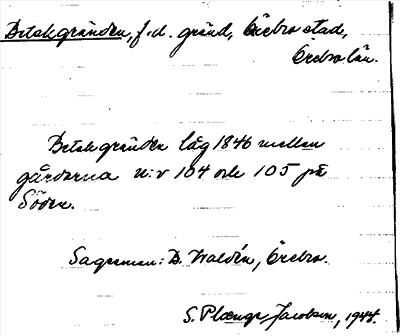 Betekgränden, f.d. gränd, Örebro stad,
Örebro län.
Betekgränden låg 1846 mellan
gårdarna n:r 104 och 105 på
Söder.
Sagesman: B. Waldén, Örebro.
S. Plænge Jacobson, 1944.